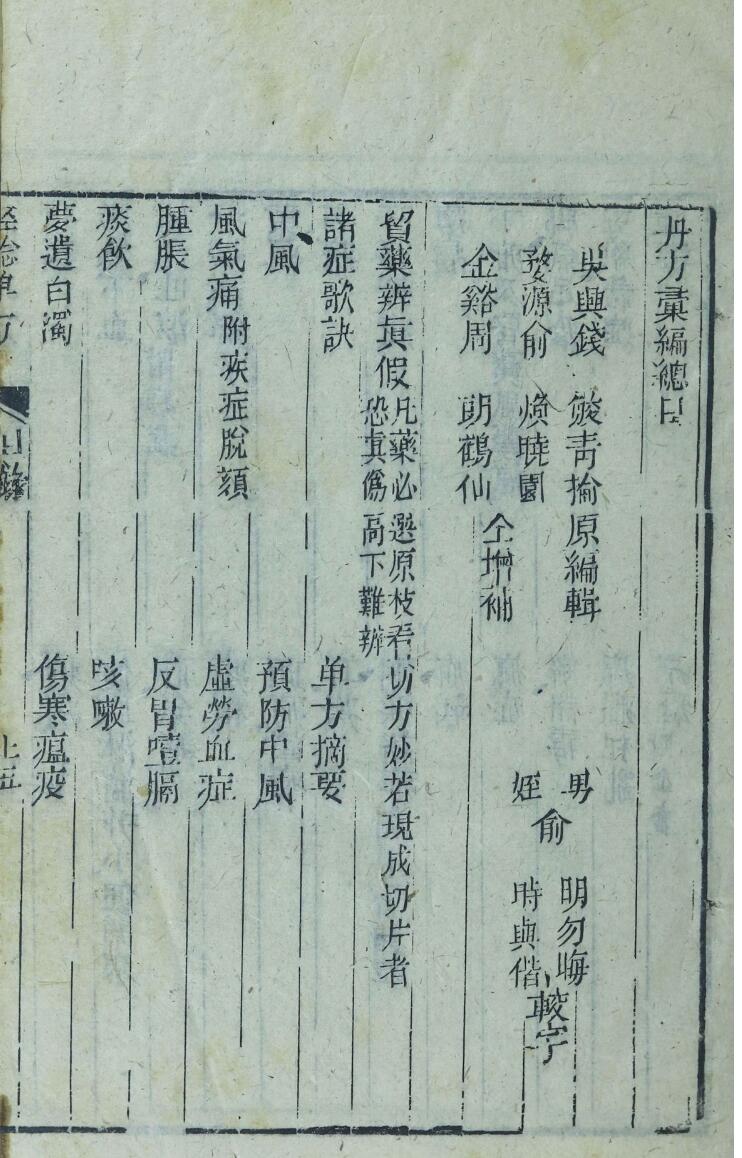 丹方彙編總目
吳興錢 峻青掄原編輯
婺源俞 煥曉園
金谿周 朗鶴仙 仝增補
男 俞 明勿晦
姪 時與偕 較字
貿藥辨真假 凡藥必選原枝看切方妙若現成切片者
恐真僞高下難辨
諸症歌訣 单方摘要
中風 預防中風
風氣痛 附疾症脫頦 虛勞血症
腫脹 反胃噎膈
痰飲 咳嗽
夢遺白濁 傷寒瘟疫
目錄